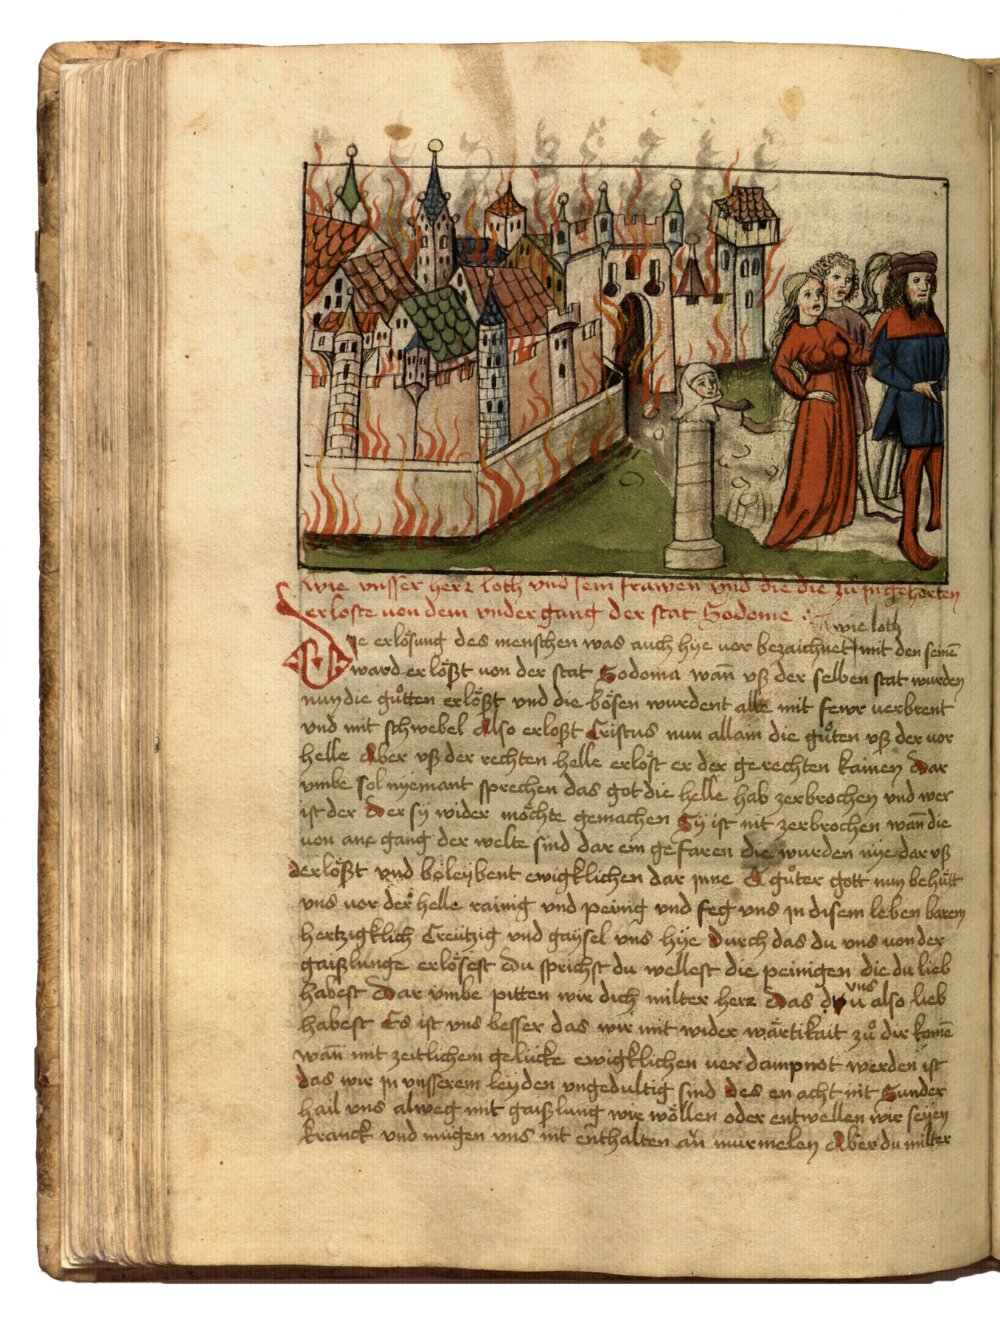 wie vnsser herr loth vnd sein frawen vnd die die zü jm gehorten
erloste von dem vnder gang der stat Sodome
wie loth
Die erlösung des menschen was auch hye vor bezaichnet mit den seinē
ward erlößt von der stat Sodoma wañ vß der selben stat wurden
nun die gůtten erlößt vnd die bösen wurdent alle mit fewr verbrent
vnd mit schwebel Also erloßt Cristus nun allain die gůten vß der vor
helle Aber vß der rechten helle erlöst er der gerechten kainen Dar
vmbe sol nyemant sprechen das got die helle hab zerbrochen vnd wer
ist der Der sy wider möchte gemachen Sy ist nit zerbrochen wañ die
von ane gang der welte sind dar ein gefaren die wurden nye dar vß
erlößt vnd beleybent ewigklichen dar jnne O gůter gott nun behütt
vns vor der helle rainig vnd peinig vnd feg vns jn disem leben barm
hertzigklich Creützig vnd gaysel vns hye Durch das du vns von der
gaißlunge erlösest Du sprichst du wellest die peinigen die du lieb
habest Dar vmbe pitten wir dich milter herr Das du vns also lieb
habest Es ist vns besser das wir mit wider wärtikait zů dir komē
wañ mit zeitlichem gelücke ewigklichen verdampnot werden ist
das wir jn vnsserem leyden vngedultig sind Des en acht nit Sunder
hail vns alweg mit gaißlung wir wöllen oder entwellen wir seyen
kranck vnd mügen vns nit enthalten an murmelen Aber du milter